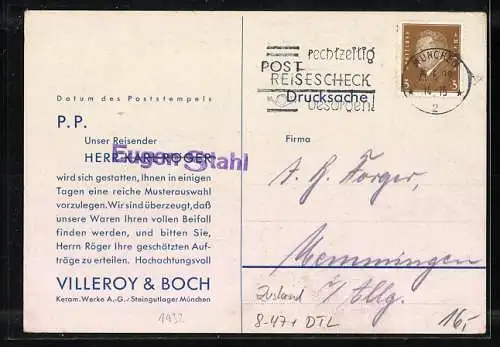 rechtzeitig
POST
REISESCHECK
Drucksache!
besorgen!
MÜNCHEN
2
Datum des Poststempels
P.P.
Unser Reisender
HERR KARL RÖGER
Eugen Stahl
wird sich gestatten, Ihnen in einigen
Tagen eine reiche Musterauswahl
vorzulegen. Wir sind überzeugt, daß
unsere Waren Ihren vollen Beifall
finden werden, und bitten Sie,
Herrn Röger Ihre geschätzten Auf-
träge zu erteilen. Hochachtungsvoll
VILLEROY & BOCH
Keram. Werke A.-G. / Steingutlager München
1932
Firma
Memmingen
Allg.
8-47+ DTL
16,-